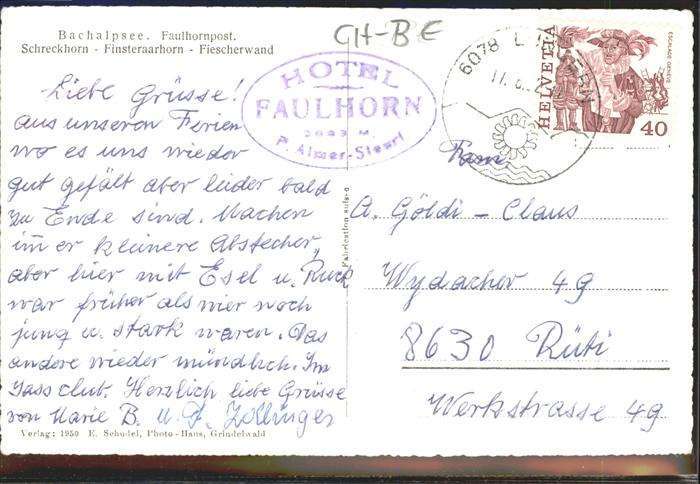 Bachalpsee. Faulhornpost.
Schreckhorn - Finsteraarhorn - Fiescherwand
CH-BE
HOTEL
FAULHORN
2683 M.
P. Almer-Steuri
6078 L
17.6.
HELVETIA
ESCALADE GENÈVE
40
Liebe Grüsse!
aus unseren Ferien
wo es uns wieder
gut gefält aber leider bald
zu Ende sind. Machen
im er kleinere Abstecher,
aber hier mit Esel u. Ruck
war früher als wier noch
jung u. stark waren. Das
andere wieder mündlich. Im
Jassclub. Herzlich liebe Grüsse
von Marie B. u. Zollinger
Fam.
A. Göldi - Claus
Wydacher 49
8630 Rüti
Werkstrasse 49
Verlag: 1950 E. Schudel, Photo-Haus, Grindelwald